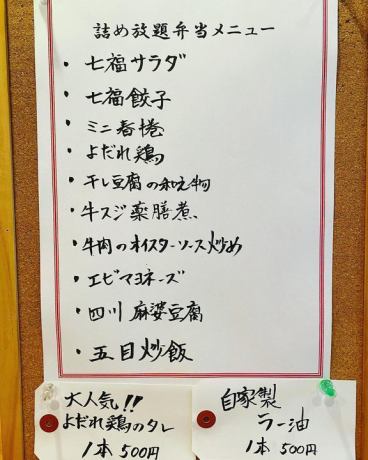 詰め放題弁当メニュー
・七福サラダ
・七福餃子
・ミニ春捲
・よだれ鶏
・干し豆腐の和え物
・牛スジ薬膳煮
・牛肉のオイスターソース炒め
・エビマヨネーズ
・四川麻婆豆腐
・五目炒飯
大人気!!
よだれ鶏のタレ
1本 500円
自家製
ラー油
1本 500円